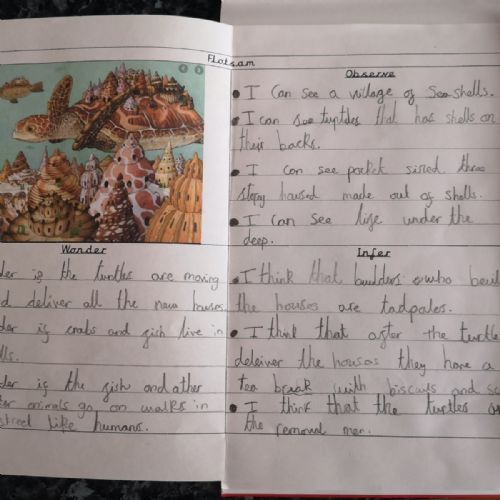 Flotsam
Observe
• I can see a village of Sea shells.
• I can see turtles that has shells on
their backs.
• I can see pocket sized three
story housed made out of shells.
• I can see life under the
deep.
Wonder
der if the turtles are moving
d deliver all the new houses
der if crabs and fish live in
lls.
der if the fish and other
er animals go on walks in
street like humans.
Infer
• I think that builders who
the houses are tadpoles.
• I think that after the turtle
deleiver the houses they have a
tea break with biscuits and
• I think that the turtles
the removal men.